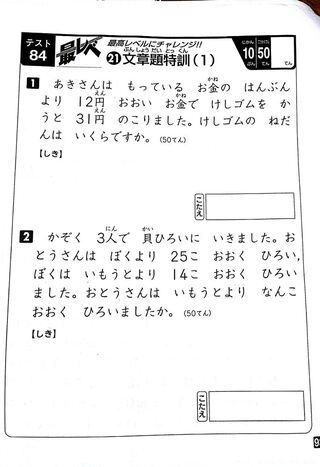 テスト
84
最レベ
最高レベルにチャレンジ!!
㉑文章題特訓(1)
ぶんしょうだいとっくん
じかん
10
ぷん
ごうかく
50
てん
てん
1 あきさんは もっている お金の はんぶん
かね
より 12円 おおい お金で けしゴムを か
えん かね
うと 31円 のこりました。けしゴムの ねだ
えん
んは いくらですか。(50てん)
【しき】
こたえ
2 かぞく 3人で 貝ひろいに いきました。お
にん かい
とうさんは ぼくより 25こ おおく ひろい,
ぼくは いもうとより 14こ おおく ひろい
ました。おとうさんは いもうとより なんこ
おおく ひろいましたか。(50てん)
【しき】
こたえ